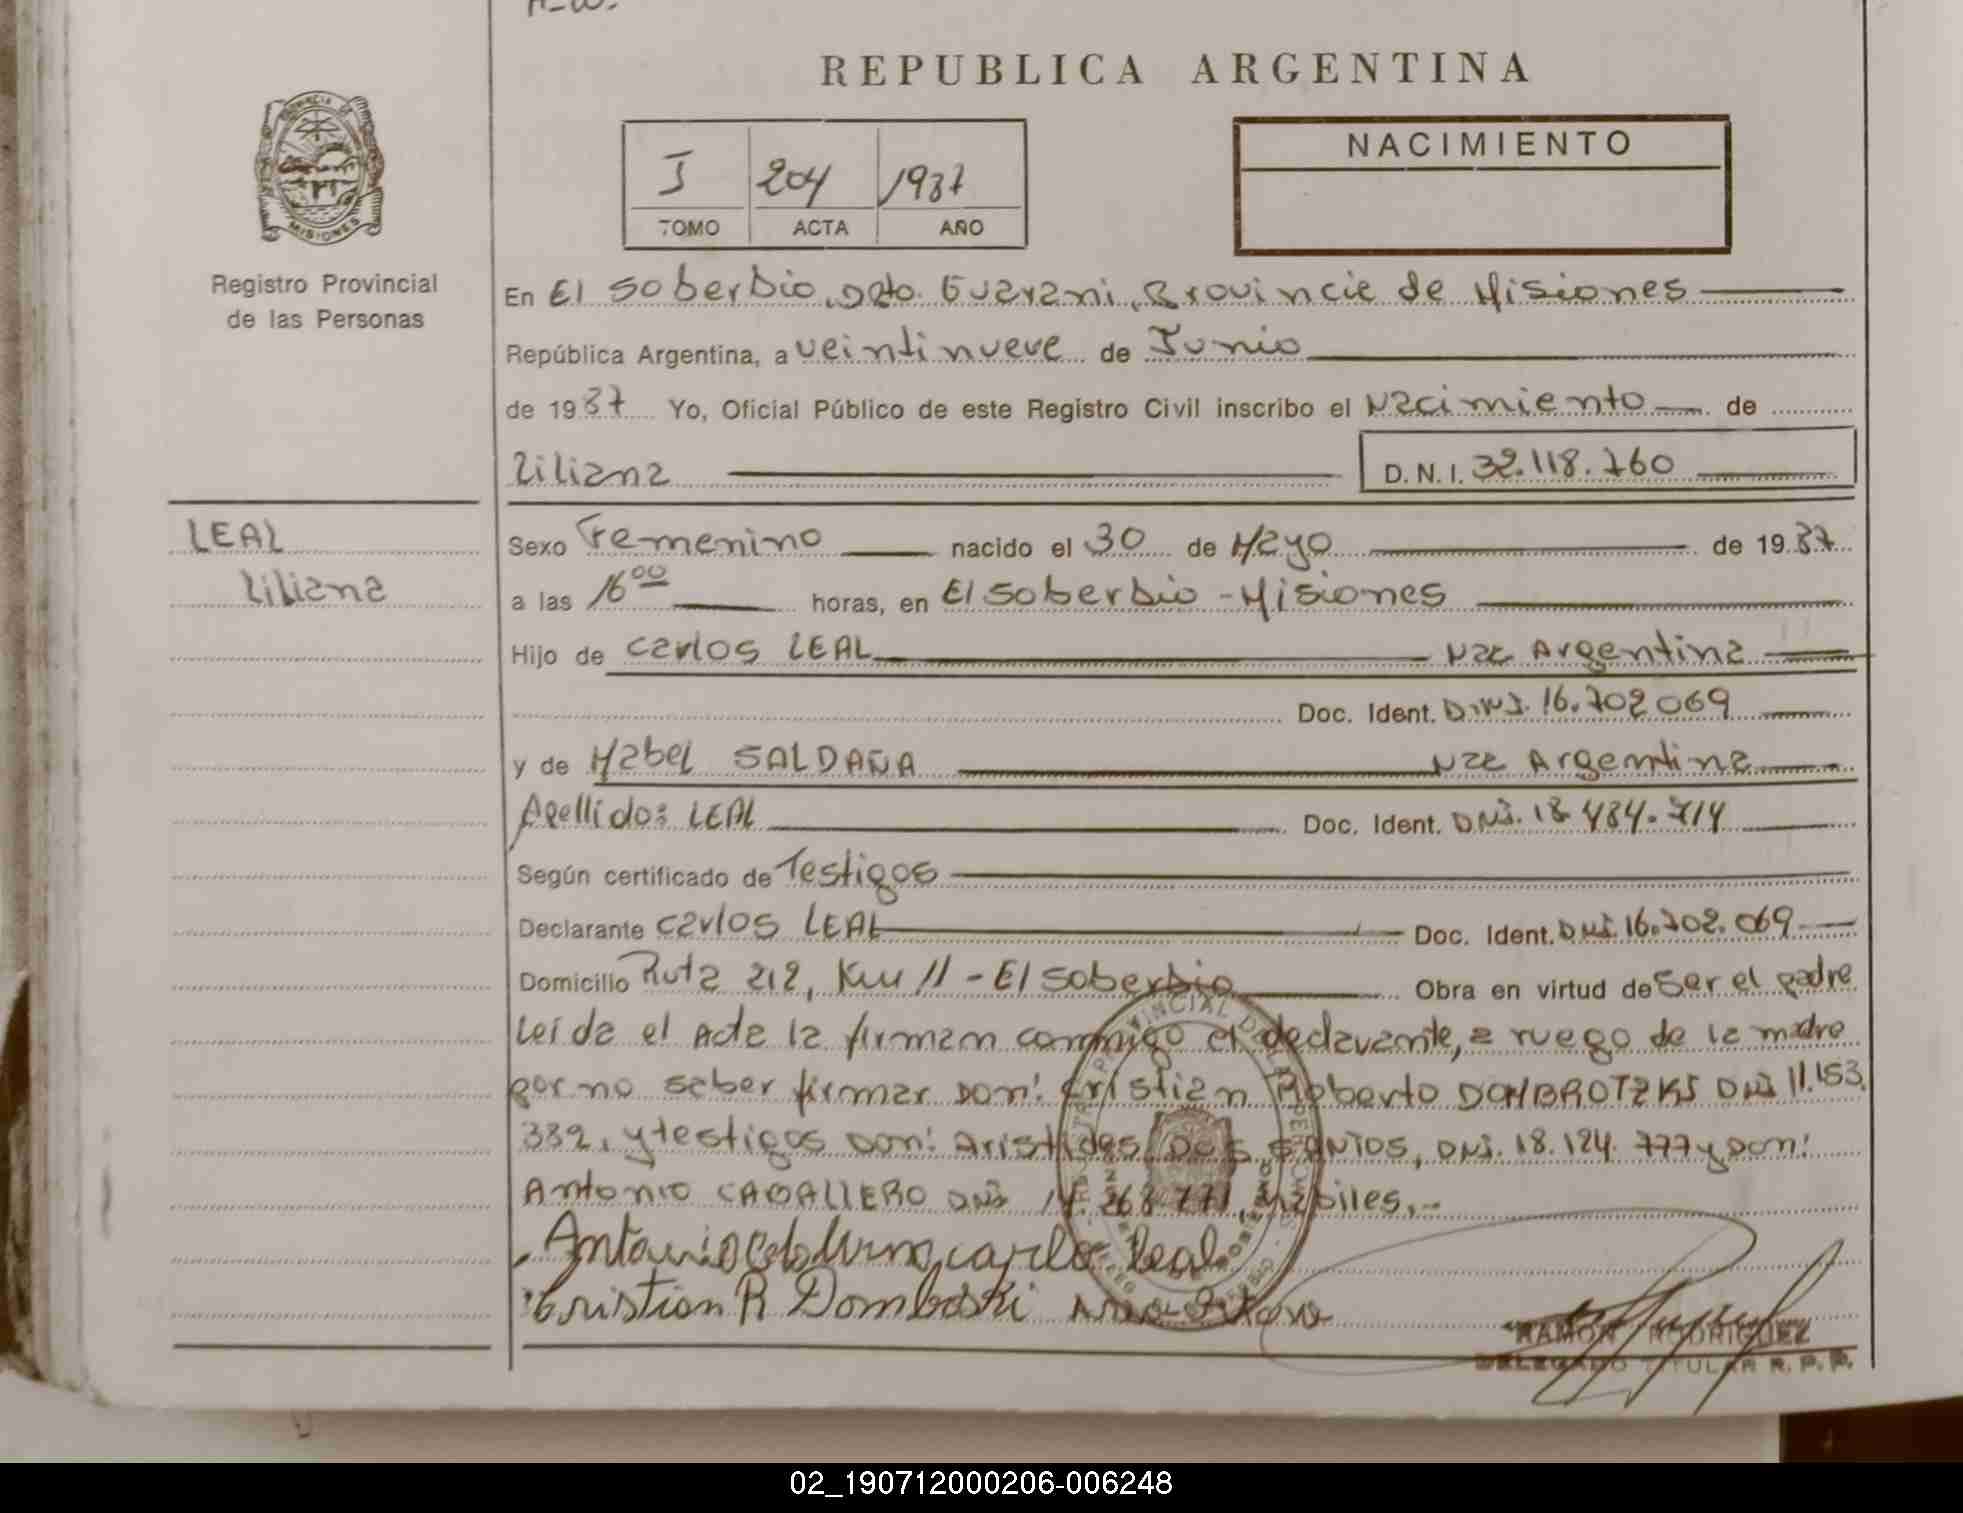 REPUBLICA ARGENTINA
I 204 1987
TOMO ACTA AÑO
NACIMIENTO
PROVINCIA DE MISIONES
Registro Provincial
de las Personas
En El Soberbio, Dpto. Guarani, Provincia de Misiones
República Argentina, a veintinueve de Junio
de 1987 Yo, Oficial Público de este Registro Civil inscribo el Nacimiento de
Liliana D.N.I. 32.118.760
LEAL
Liliana
Sexo Femenino nacido el 30 de Mayo de 1987
a las 16⁰⁰ horas, en El Soberbio - Misiones
Hijo de Carlos LEAL Nac Argentina
Doc. Ident. D.N.I. 16.702069
y de Mabel SALDAÑA Nac Argentina
Apellido: LEAL Doc. Ident. DNI. 18.484.714
Según certificado de Testigos
Declarante Carlos LEAL Doc. Ident. DNI. 16.702.069
Domicilio Ruta 212, Km 11 - El Soberbio Obra en virtud de Ser el padre
Leida el Acta la firman conmigo el declarante, a ruego de la madre
por no saber firmar Don: Cristian Roberto DOMBROTZKI DNI 11.153.
332, y testigos Don: Aristides DOS SANTOS, DNI. 18.124.777 y Don:
Antonio CABALLERO DNI 268.771, habiles.-
Antonio Carlo Leal
Cristian R Domboski
RAMON RODRIGUEZ
DELEGADO TITULAR R. P. P.
02_190712000206-006248